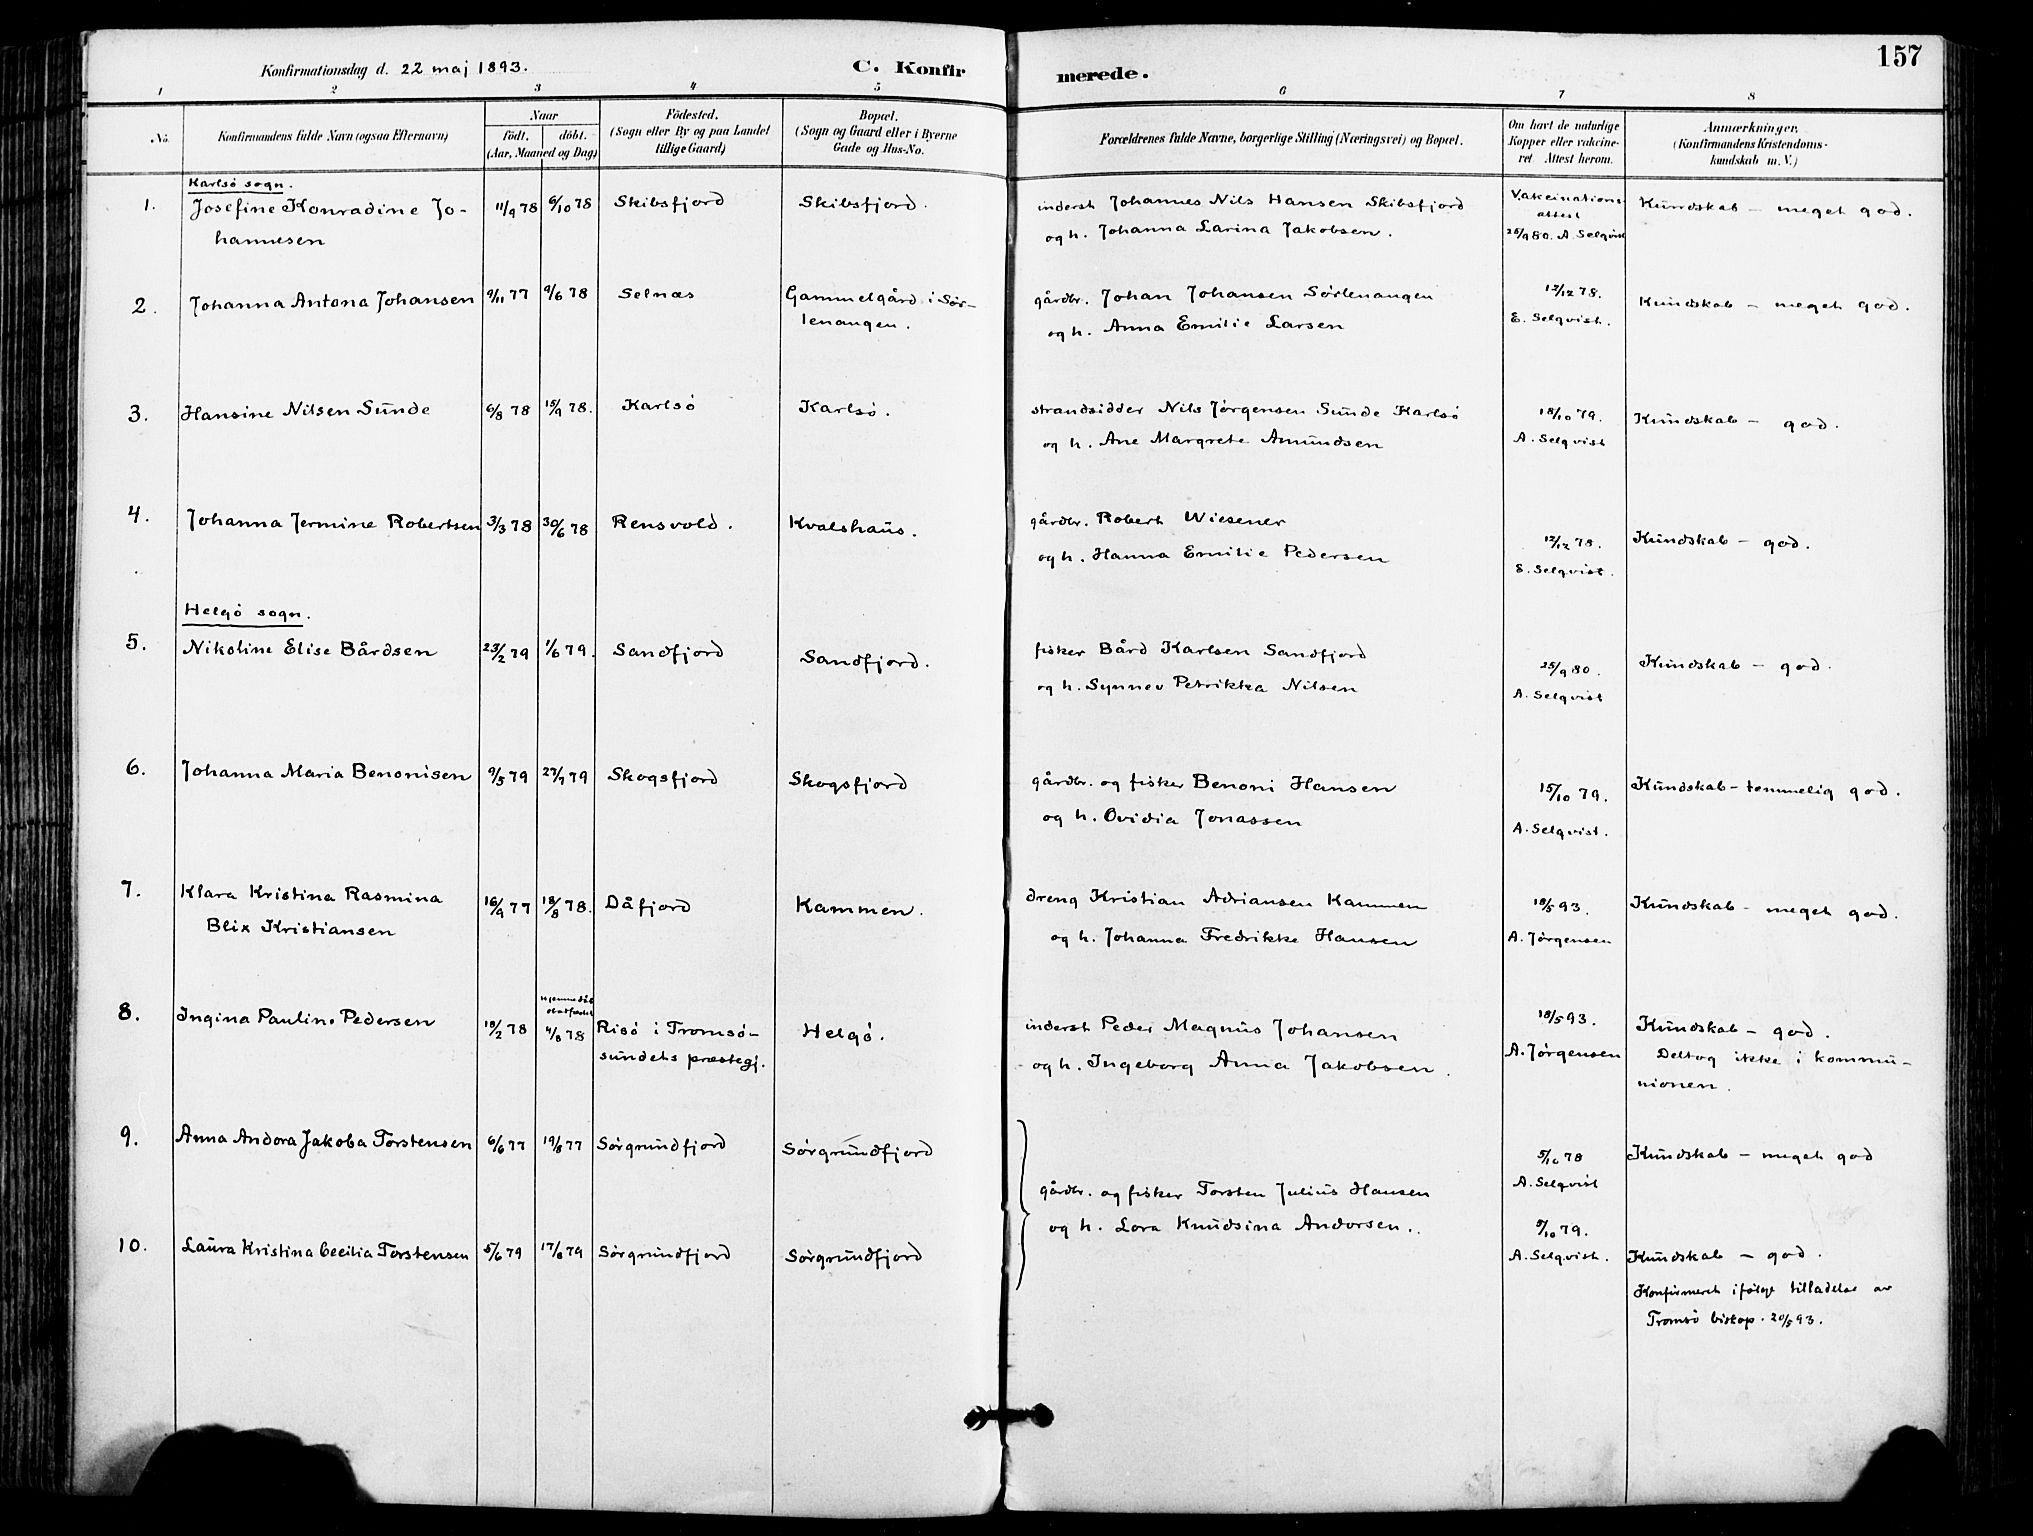 157
Konfirmationsdag d. 22 maj 1893. C. Konfirmerede.
1 2 3 4 5 6 7 8
No. Konfirmandens fulde Navn (ogsaa Efternavn) Naar født. døbt. (Aar, Maaned og Dag) Fødested. (Sogn eller By og paa Landet tillige Gaard) Bopæl. (Sogn og Gaard eller i Byerne Gade og Hus-No. Forældrenes fulde Navne, borgerlige Stilling (Næringsvei) og Bopæl. Om havt de naturlige Kopper eller vakcineret. Attest herom. Anmærkninger. (Konfirmandens Kristendomskundskab m. V.)
Karlsö sogn.
1. Josefine Konradine Jo- 11/9 78 6/10 78 Skibsfjord Skibsfjord. inderst Johannes Nils Hansen Skibsfjord Vakcinations- Kundskab – meget god.
hannesen og h. Johanna Larina Jakobsen. attest
25/9 80. A. Selqvist
2. Johanna Antona Johansen 9/11 77 9/6 78 Selnæs Gammelgård i Sör- gårdbr. Johan Johansen Sörlenangen 12/12 78. Kundskab – meget god.
lenangen. og h. Anna Emilie Larsen E. Selqvist.
3. Hansine Nilsen Sunde 6/8 78 15/9 78. Karlsö Karlsö. strandsidder Nils Jörgensen Sunde Karlsö 18/10 79. Kundskab – god.
og h. Ane Margrete Amundsen A. Selqvist
4. Johanna Jermine Robertsen 3/3 78 30/6 78 Rensvold. Kvalshaus. gårdbr. Robert Wiesener 12/12 78. Kundskab – god.
og h. Hanna Emilie Pedersen E. Selqvist.
Helgö sogn.
5. Nikoline Elise Bårdsen 23/2 79 1/6 79. Sandfjord Sandfjord. fisker Bård Karlsen Sandfjord 25/9 80. Kundskab – god.
og h. Synnev Petrikka Nilsen A. Selqvist
6. Johanna Maria Benonisen 9/5 79 27/7 79 Skogsfjord Skogsfjord gårdbr. og fisker Benoni Hansen 15/10 79. Kundskab – temmelig god.
og h. Ovidia Jonassen A. Selqvist.
7. Klara Kristina Rasmina 16/9 77 18/8 78. Dåfjord Kammen. dreng Kristian Adriansen Kammen 18/5 93. Kundskab – meget god.
Blix Kristiansen og h. Johanna Fredrikke Hansen A. Jörgensen
8. Ingina Pauline Pedersen 18/2 78 4/8 78 Risö i Tromsö- Helgö. inderst Peder Magnus Johansen 18/5 93. Kundskab – god.
sundets præstegj. og h. Ingeborg Anna Jakobsen. A. Jörgensen Deltog ikke i kommu-
nionen.
9. Anna Andora Jakoba Torstensen 6/6 77 19/8 77 Sörgrundfjord Sörgrundfjord 5/10 78 Kundskab – meget god
gårdbr. og fisker Torsten Julius Hansen A. Selqvist
og h. Lora Knudsina Andorsen. 5/10 79.
10. Laura Kristina Cecilia Torstensen 5/6 79 17/8 79 Sörgrundfjord Sörgrundfjord A. Selqvist. Kundskab – god.
Konfirmeret ifölge tilladelse av
Tromsö biskop. 20/5 93.